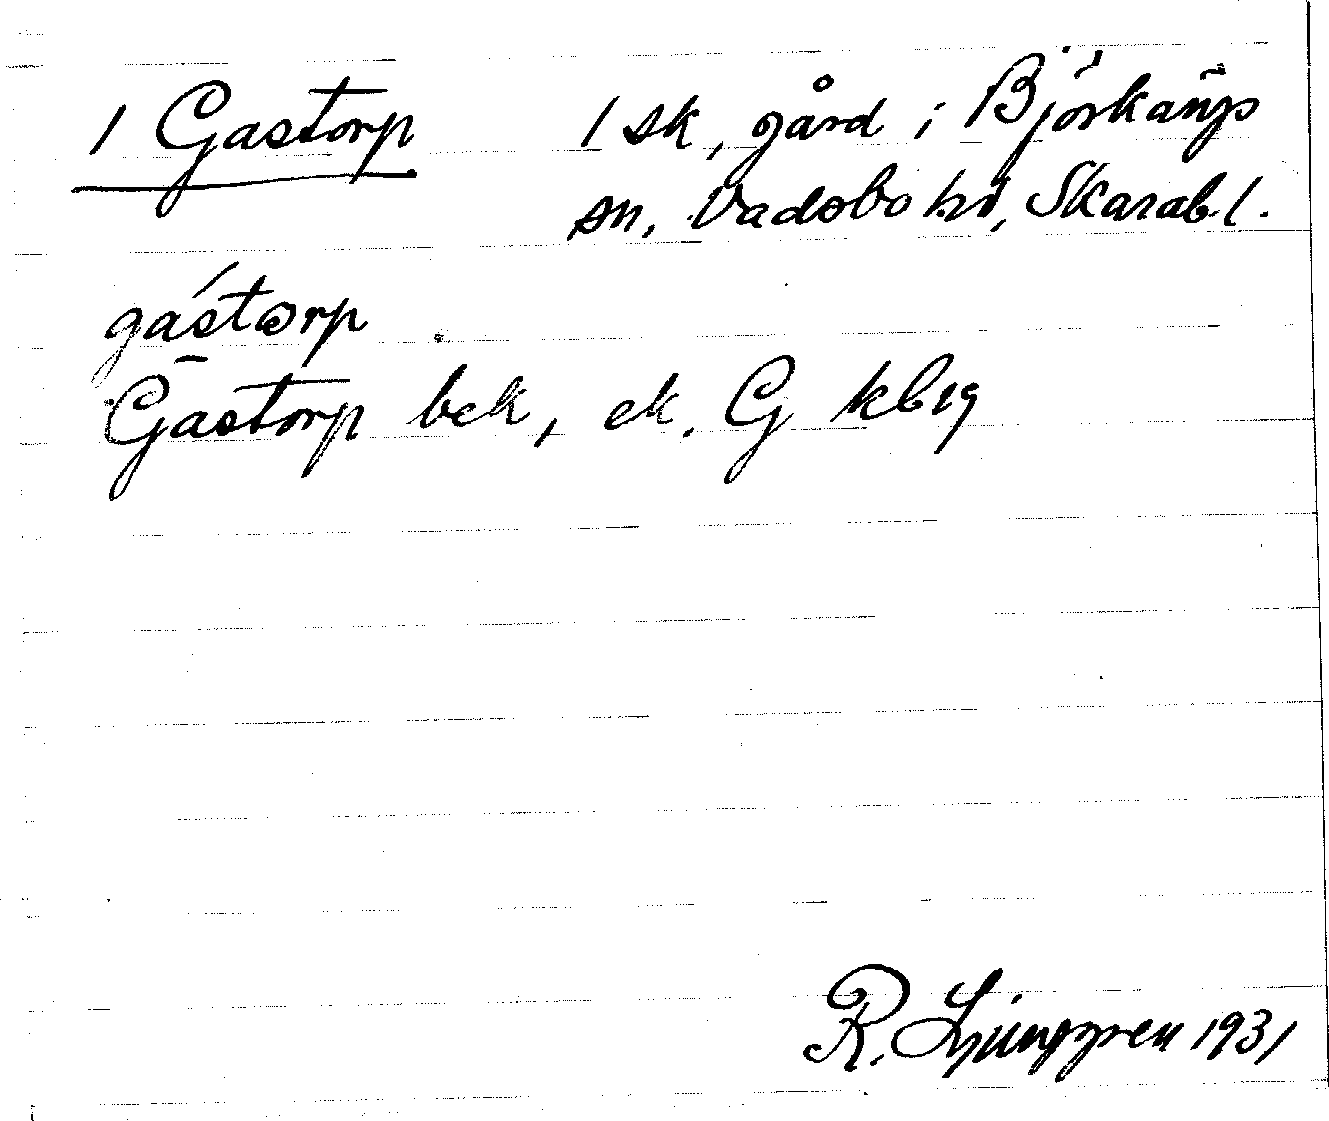 1 Gastorp 1 sk, gård i Björkängs
sn, Vadsbo hd, Skarab. l.
gástorp
Gastorp bek, ek. G kblg
R. Ljunggren 1931